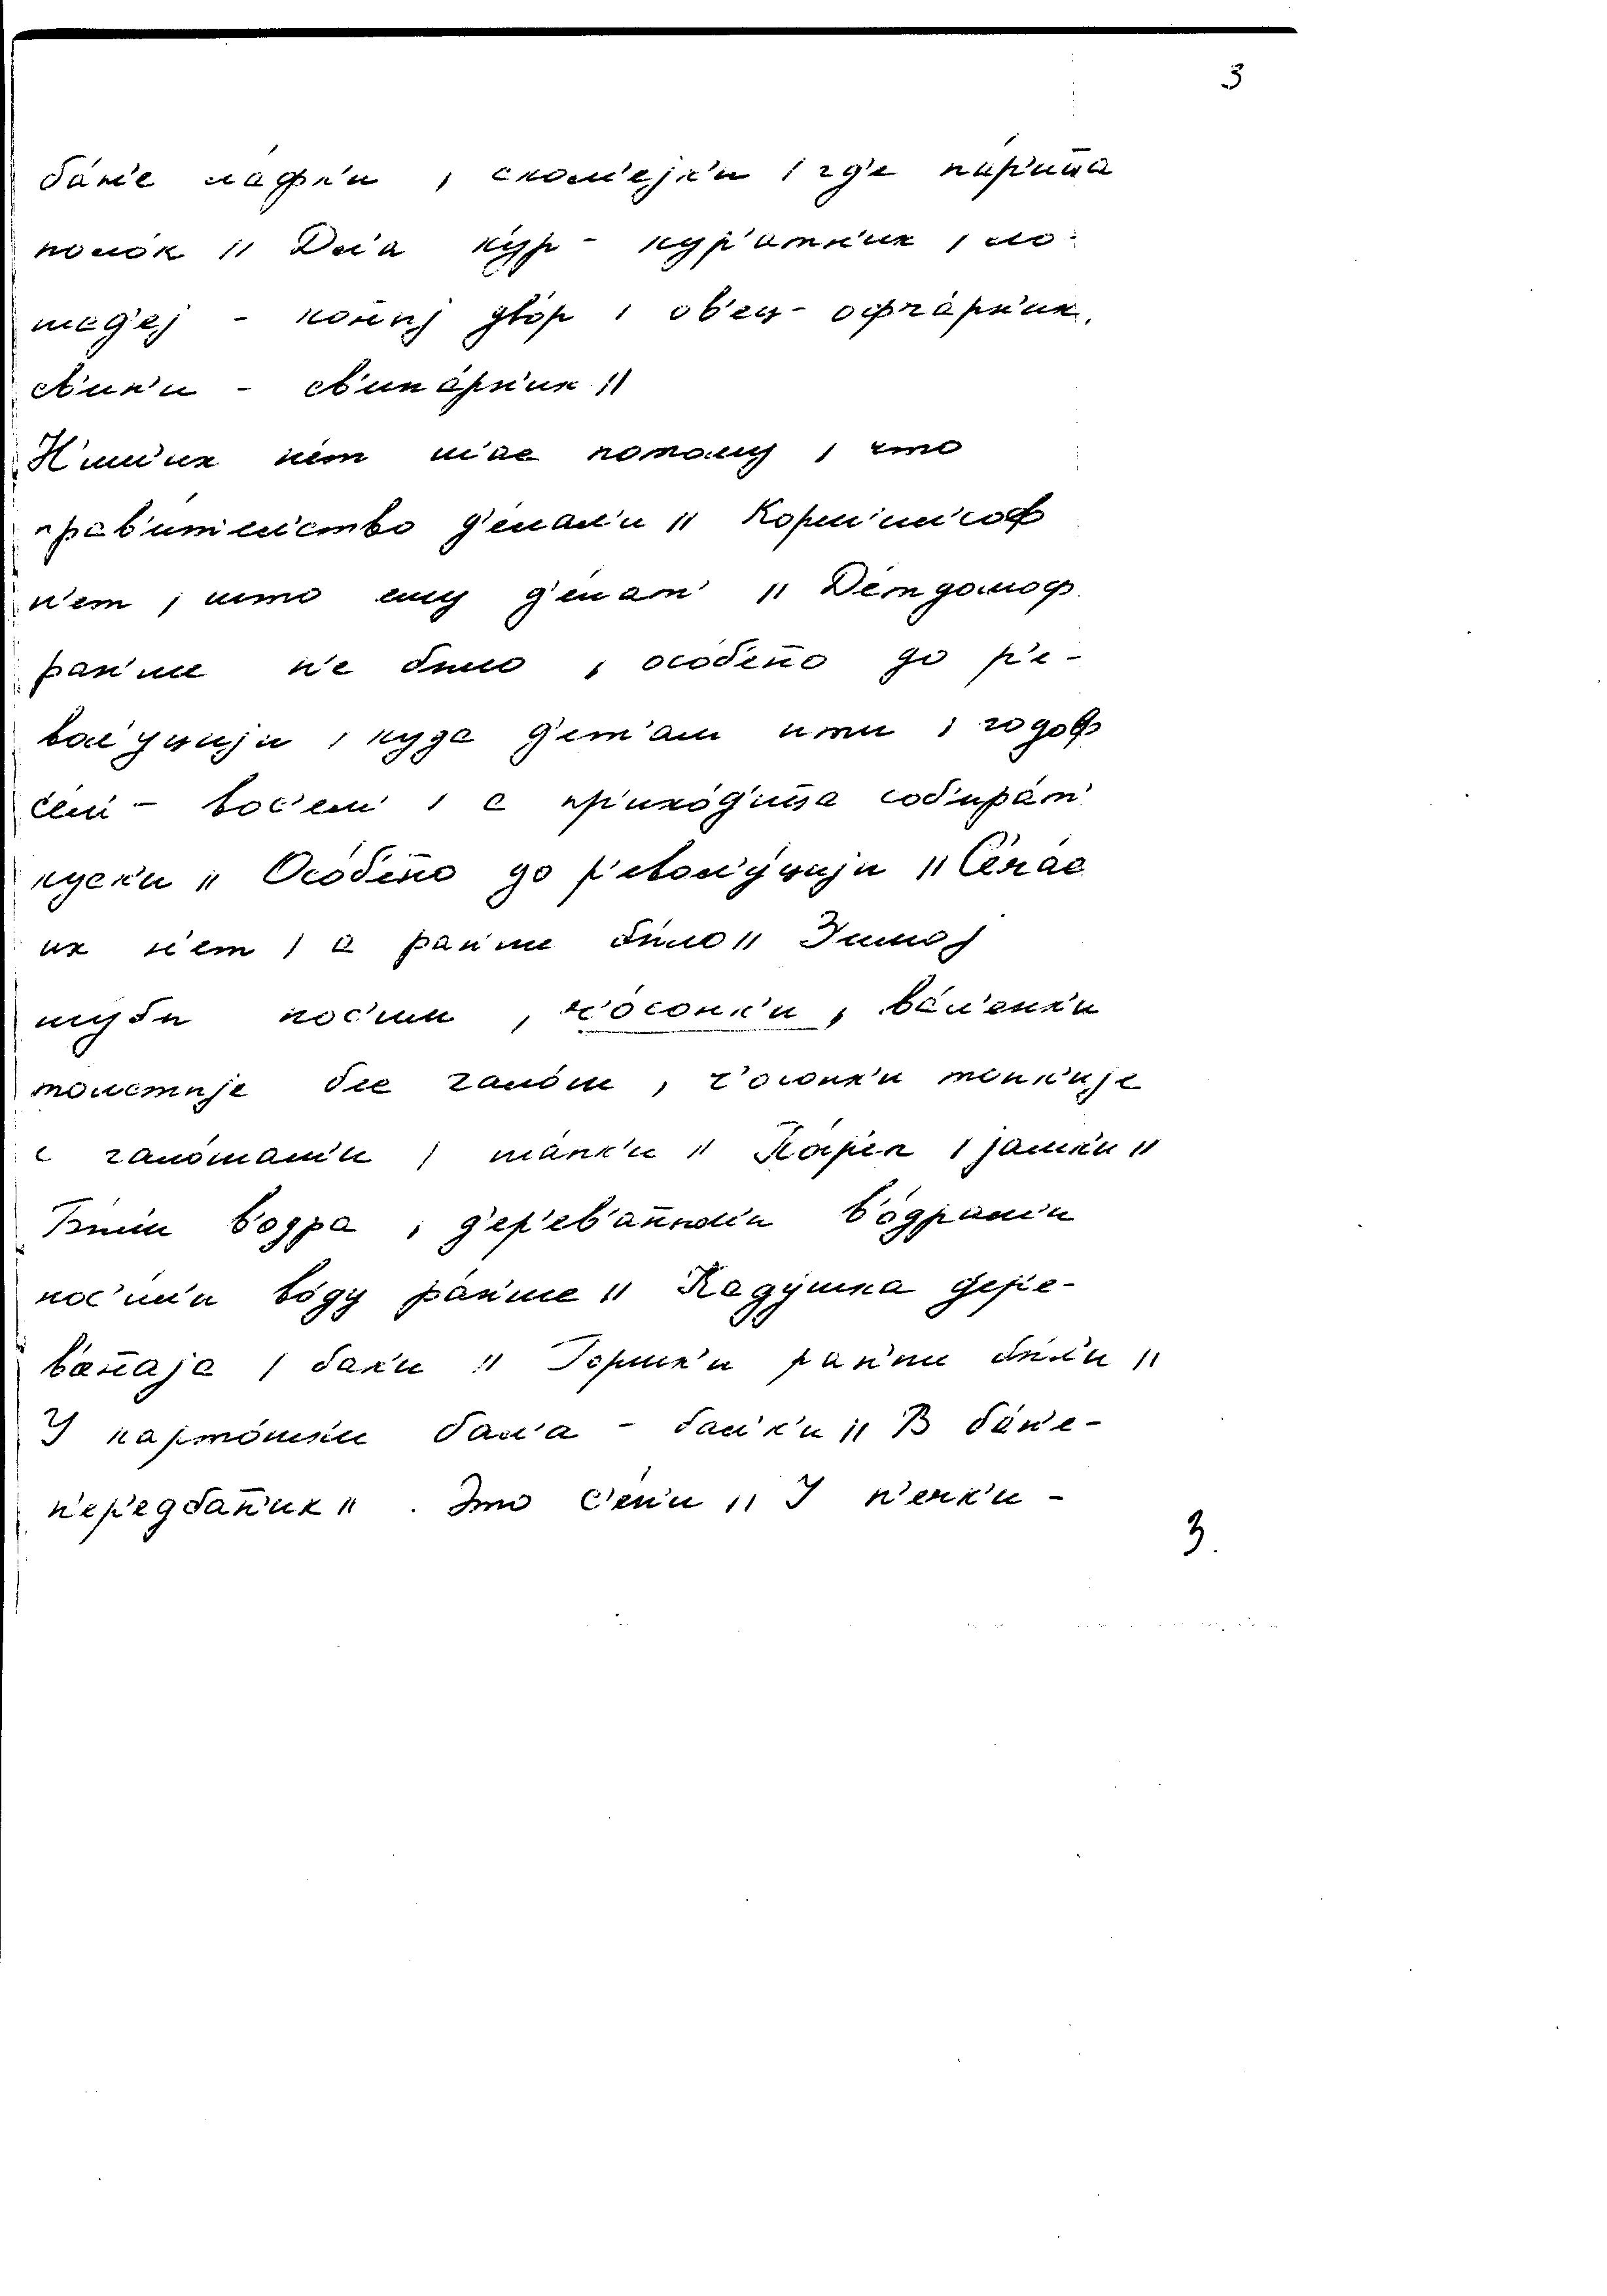 3
ба́н'е ла́фк'и , скам'ејк'и / гд'е па́р'ит̄а
поло́к // Дл'а кур - кур'атн'ик , ло-
шад'еј - ко́н̄ыј двор , ов'ец - офча́рн'ик,
св'ин'и - св'ина́рн'ик //
Н'ишч'их н'ет потому , что
прав'ит'ил'ство д'елал'и // Корм'ил'соф
н'ет , што ему д'елат' // Детдомоф
ран'ше н'е было , особ'ен̄о до р'е-
вол'у́цыjи , куда д'ет'ам ити , годоф
с'ем' - вос'ем' , а пр'ихо́д'иц̄а соб'ира́т'
куск'и // Осо́б'ен̄о до р'евол'у́цыjи // С'ича́с
их н'ет , а ран'ше было // З'имој
шубы нос'или , ч'о́сонк'и , ва́л'енк'и
толстыје без гало́ш , ч'осонк'и тонк'ијe
с гало́шам'и , ша́пк'и //
Были в'одра , д'ер'ев'ан̄ым'и в'о́драм'и
нос'ил'и во́ду ра́н'ше // Каду́шка дер'е-
в'ан̄аја / бак'и // Горшк'и ран'ше был'и //
У карто́шки
п'ер'едба́н̄ик // . Это с'е́н'и // У п'ечк'и -
3.